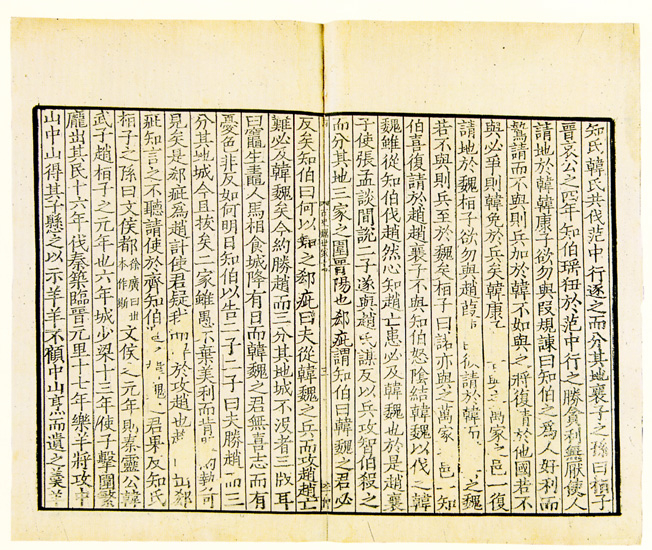 知氏韓氏共伐范中行逐之而分其地襄子之孫曰桓子
晉哀公之四年知伯瑶狃於范中行之勝貪利無厭使人
請地於韓韓康子欲勿與段規諫曰知伯之爲人好利而
驁請而不與則兵加於韓不如與之將復請於他國若不
與必爭則韓免於兵矣韓康之邑一復
請地於魏桓子欲勿與趙葭請於韓之魏
若不與則兵至於魏矣桓子曰諾亦與之萬家邑一知
伯喜復請於趙趙襄子不與知伯怒陰結韓魏以伐之韓
魏雖從知伯伐趙然心知趙亡患必及韓魏也於是趙襄
子使張孟談間說二子遂與趙氏謀反以兵攻智伯殺之
而分其地三家之圍晉陽也郄疵謂知伯曰韓魏之君必
反矣知伯曰何以知之郄疵曰夫從韓魏之兵而攻趙趙亡
難必及韓魏矣今約勝趙而三分其地城不沒者三版耳
臼竈生鼃人馬相食城降有日而韓魏之君無喜志而有
憂色非反如何明日知伯以告二子二子曰夫勝趙而三
分其地城今且拔矣二家雖愚不棄美利而背約執可
見矣是郄疵爲趙計使君疑我而於攻趙也出郄
疵知言之不聽請使於齊知伯君果反知氏
桓子之孫曰文侯都徐廣曰世本作斯文侯之元年則秦靈公韓
武子趙桓子之元年也六年城少梁十三年使子擊圍繁
龐出其民十六年伐秦築臨晉元里十七年樂羊將攻中
山中山得其子懸之以示羊羊不顧中山烹而遺之羹羊